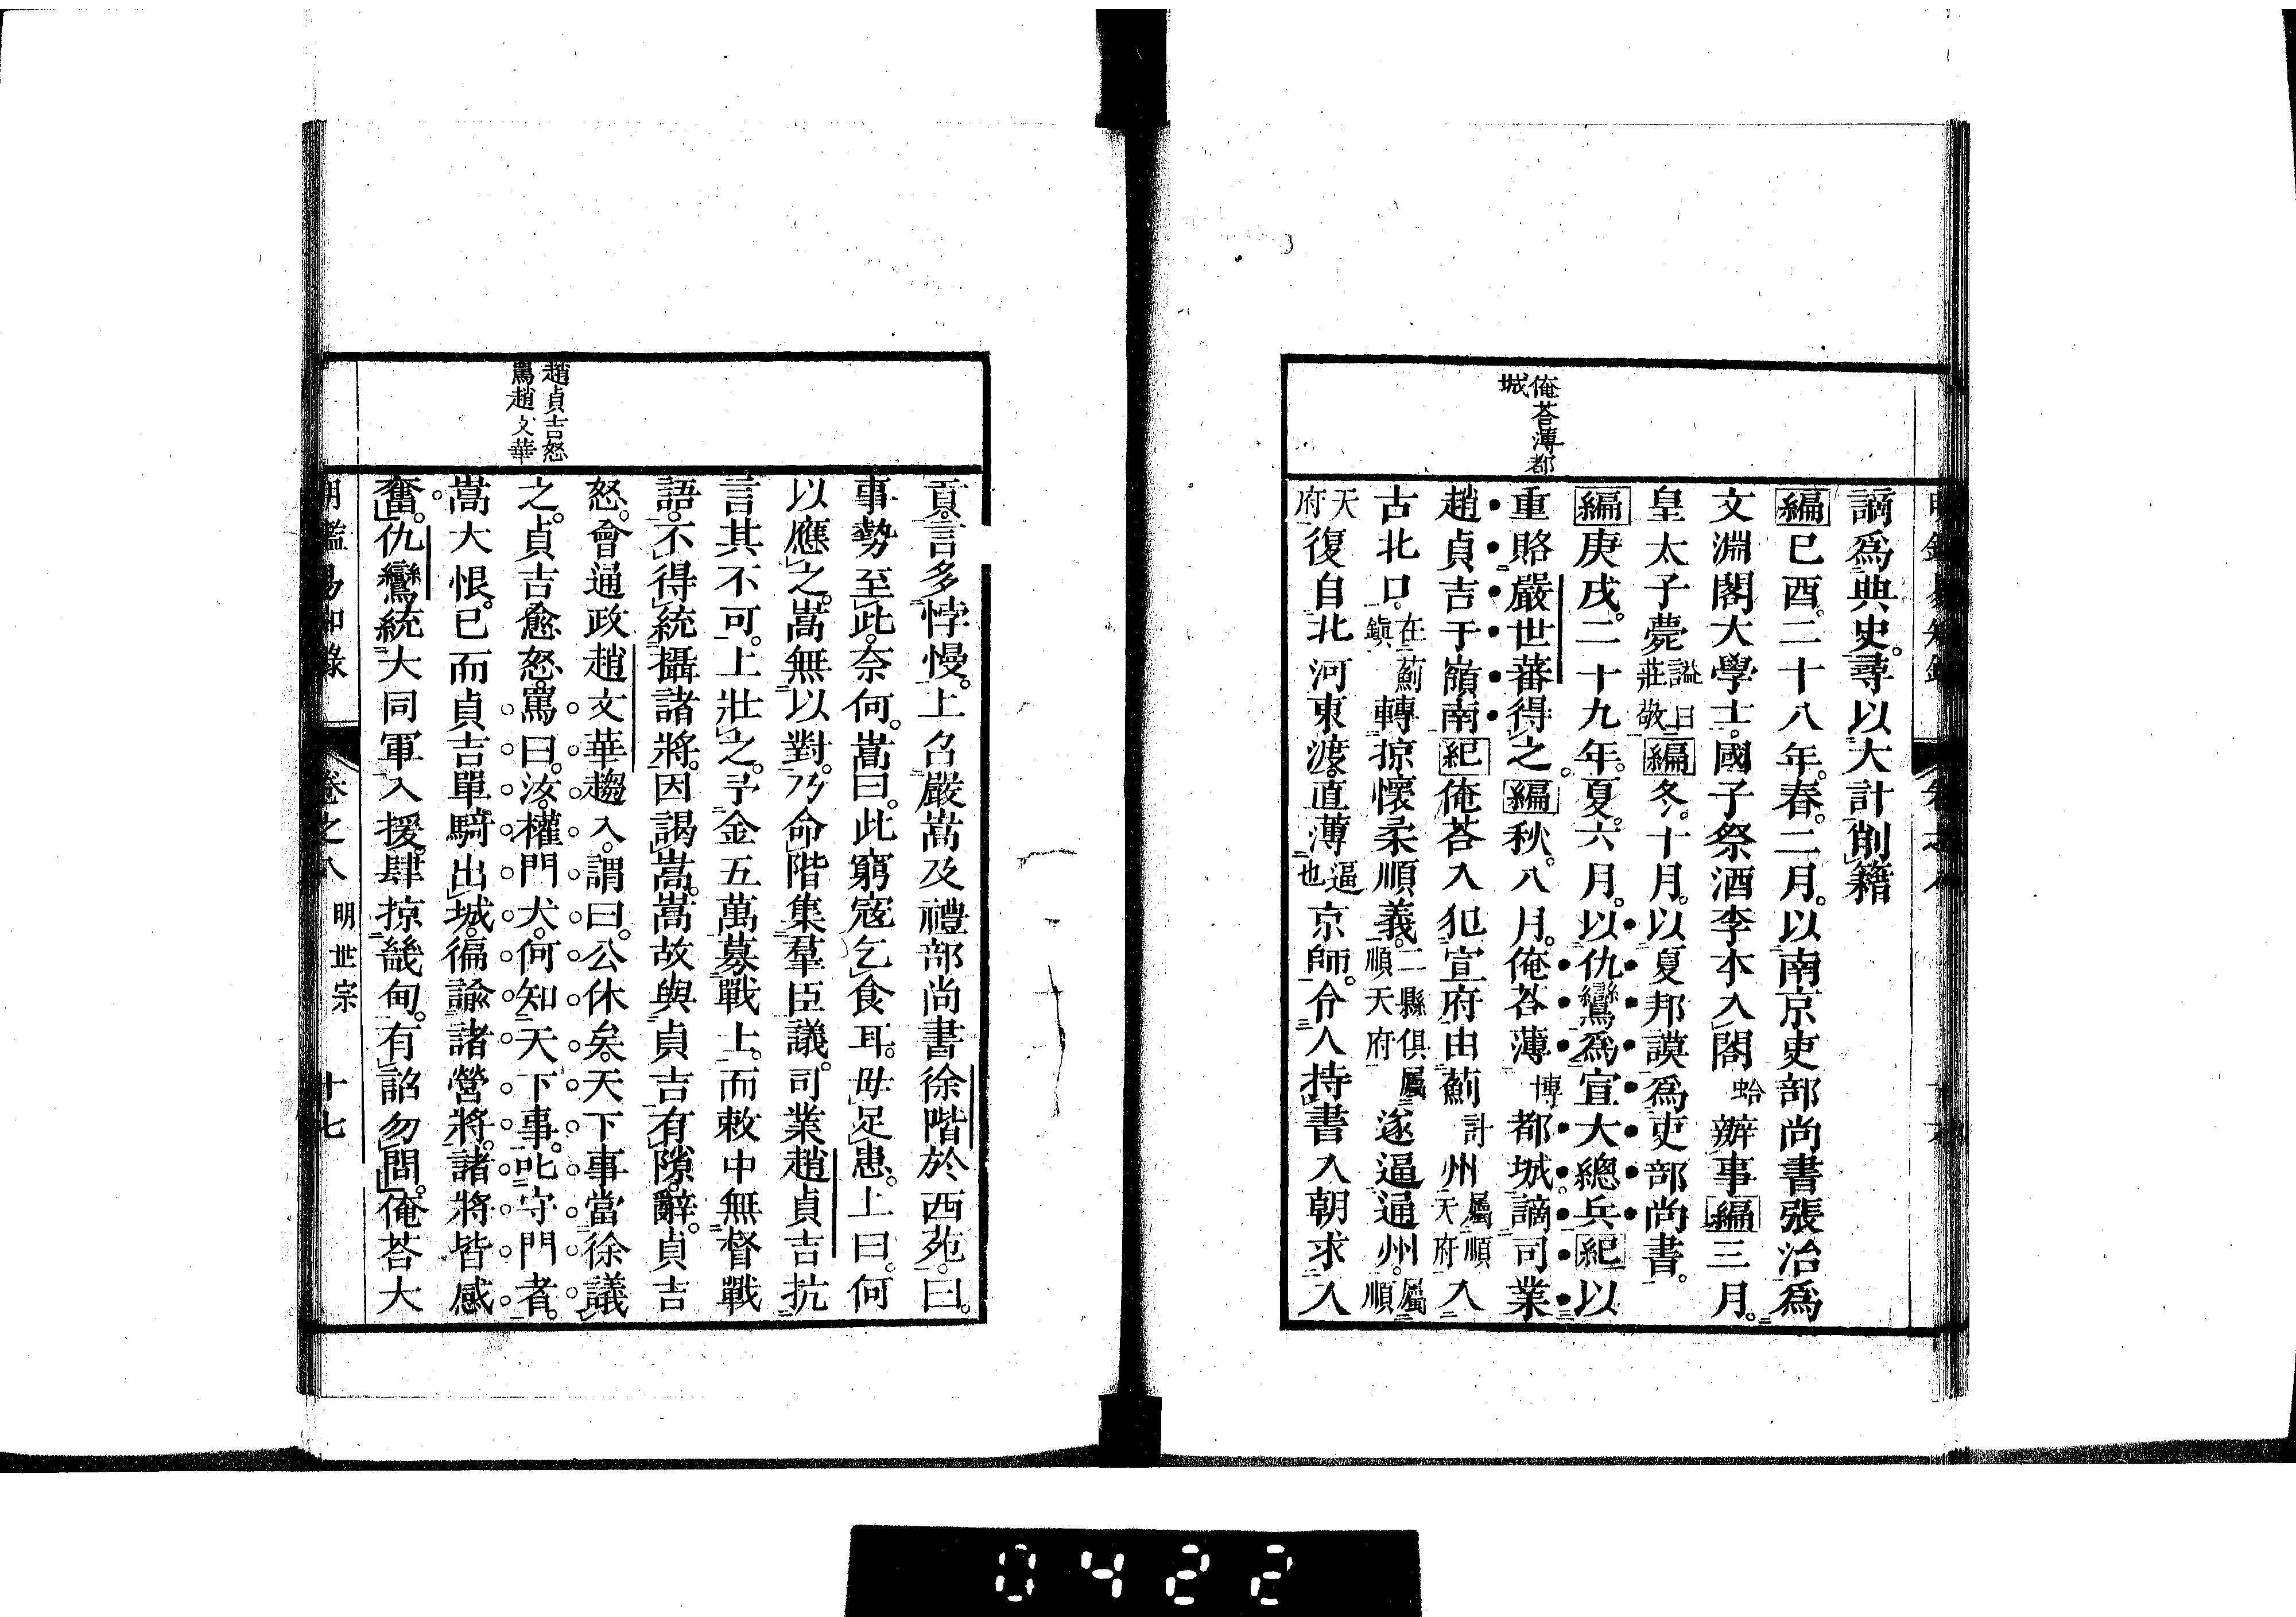 謫爲典史。尋以大計削籍
編己酉。二十八年。春。二月。以南京吏部尚書張治爲
文淵閣大學士。國子祭酒李本入閣蛤辦事編三月。
皇太子薨謚曰莊敬編冬。十月。以夏邦謨爲吏部尚書。
編庚戌。二十九年。夏。六月。以仇鸞爲宣大總兵紀以
重賂嚴世蕃得之。編秋。八月。俺荅薄博都城。謫司業
趙貞吉于嶺南紀俺荅入犯宣府由薊計州屬順天府入
古北口。在薊鎭轉掠懷柔順義。二縣俱屬順天府遂逼通州。屬順
天府復自北河東渡。直薄逼也京師。令人持書入朝求入
俺荅薄都
城
貢。言多悖慢。上召嚴嵩及禮部尚書徐階於西苑。曰。
事勢至此。奈何。嵩曰。此窮寇乞食耳。毋足患。上曰。何
以應之。嵩無以對。乃命階集羣臣議。司業趙貞吉抗
言其不可。上壯之。予金五萬募戰士。而敕中無督戰
語。不得統攝諸將。因謁嵩。嵩故與貞吉有隙。辭。貞吉
怒。會通政趙文華趨入。謂曰。公休矣。天下事當徐議
之。貞吉愈怒。罵曰。汝權門犬。何知天下事。叱守門者。
嵩大恨。已而貞吉單騎出城。徧諭諸營將。諸將皆感
奮。仇鸞統大同軍入援。肆掠畿甸。有詔勿問。俺荅大
趙貞吉怒
罵趙文華
明鑑易知錄 卷之八 明世宗 十七
0422